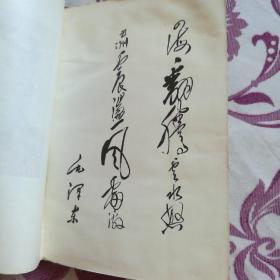 四海翻腾云水怒
五洲震荡风雷激
毛泽东